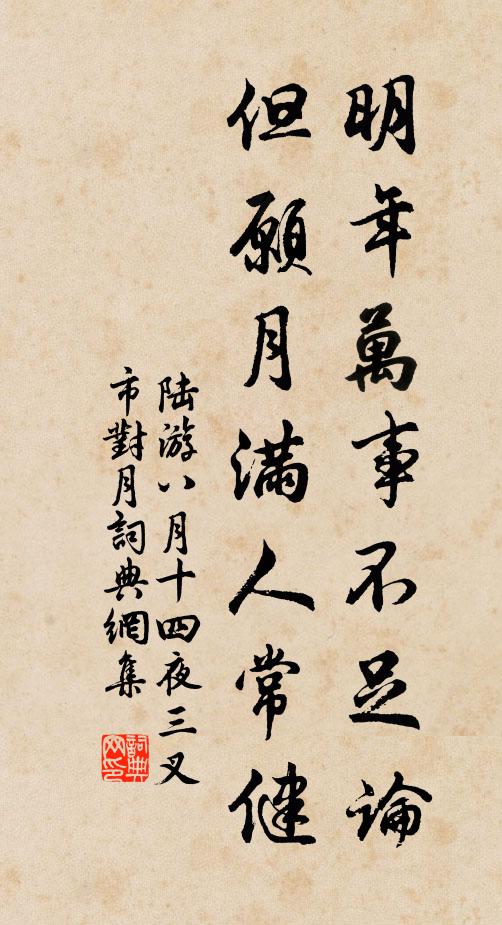 明年萬事不足論
但願月滿人常健
陸游八月十四夜三叉
市對月詞典網集
詞典网印